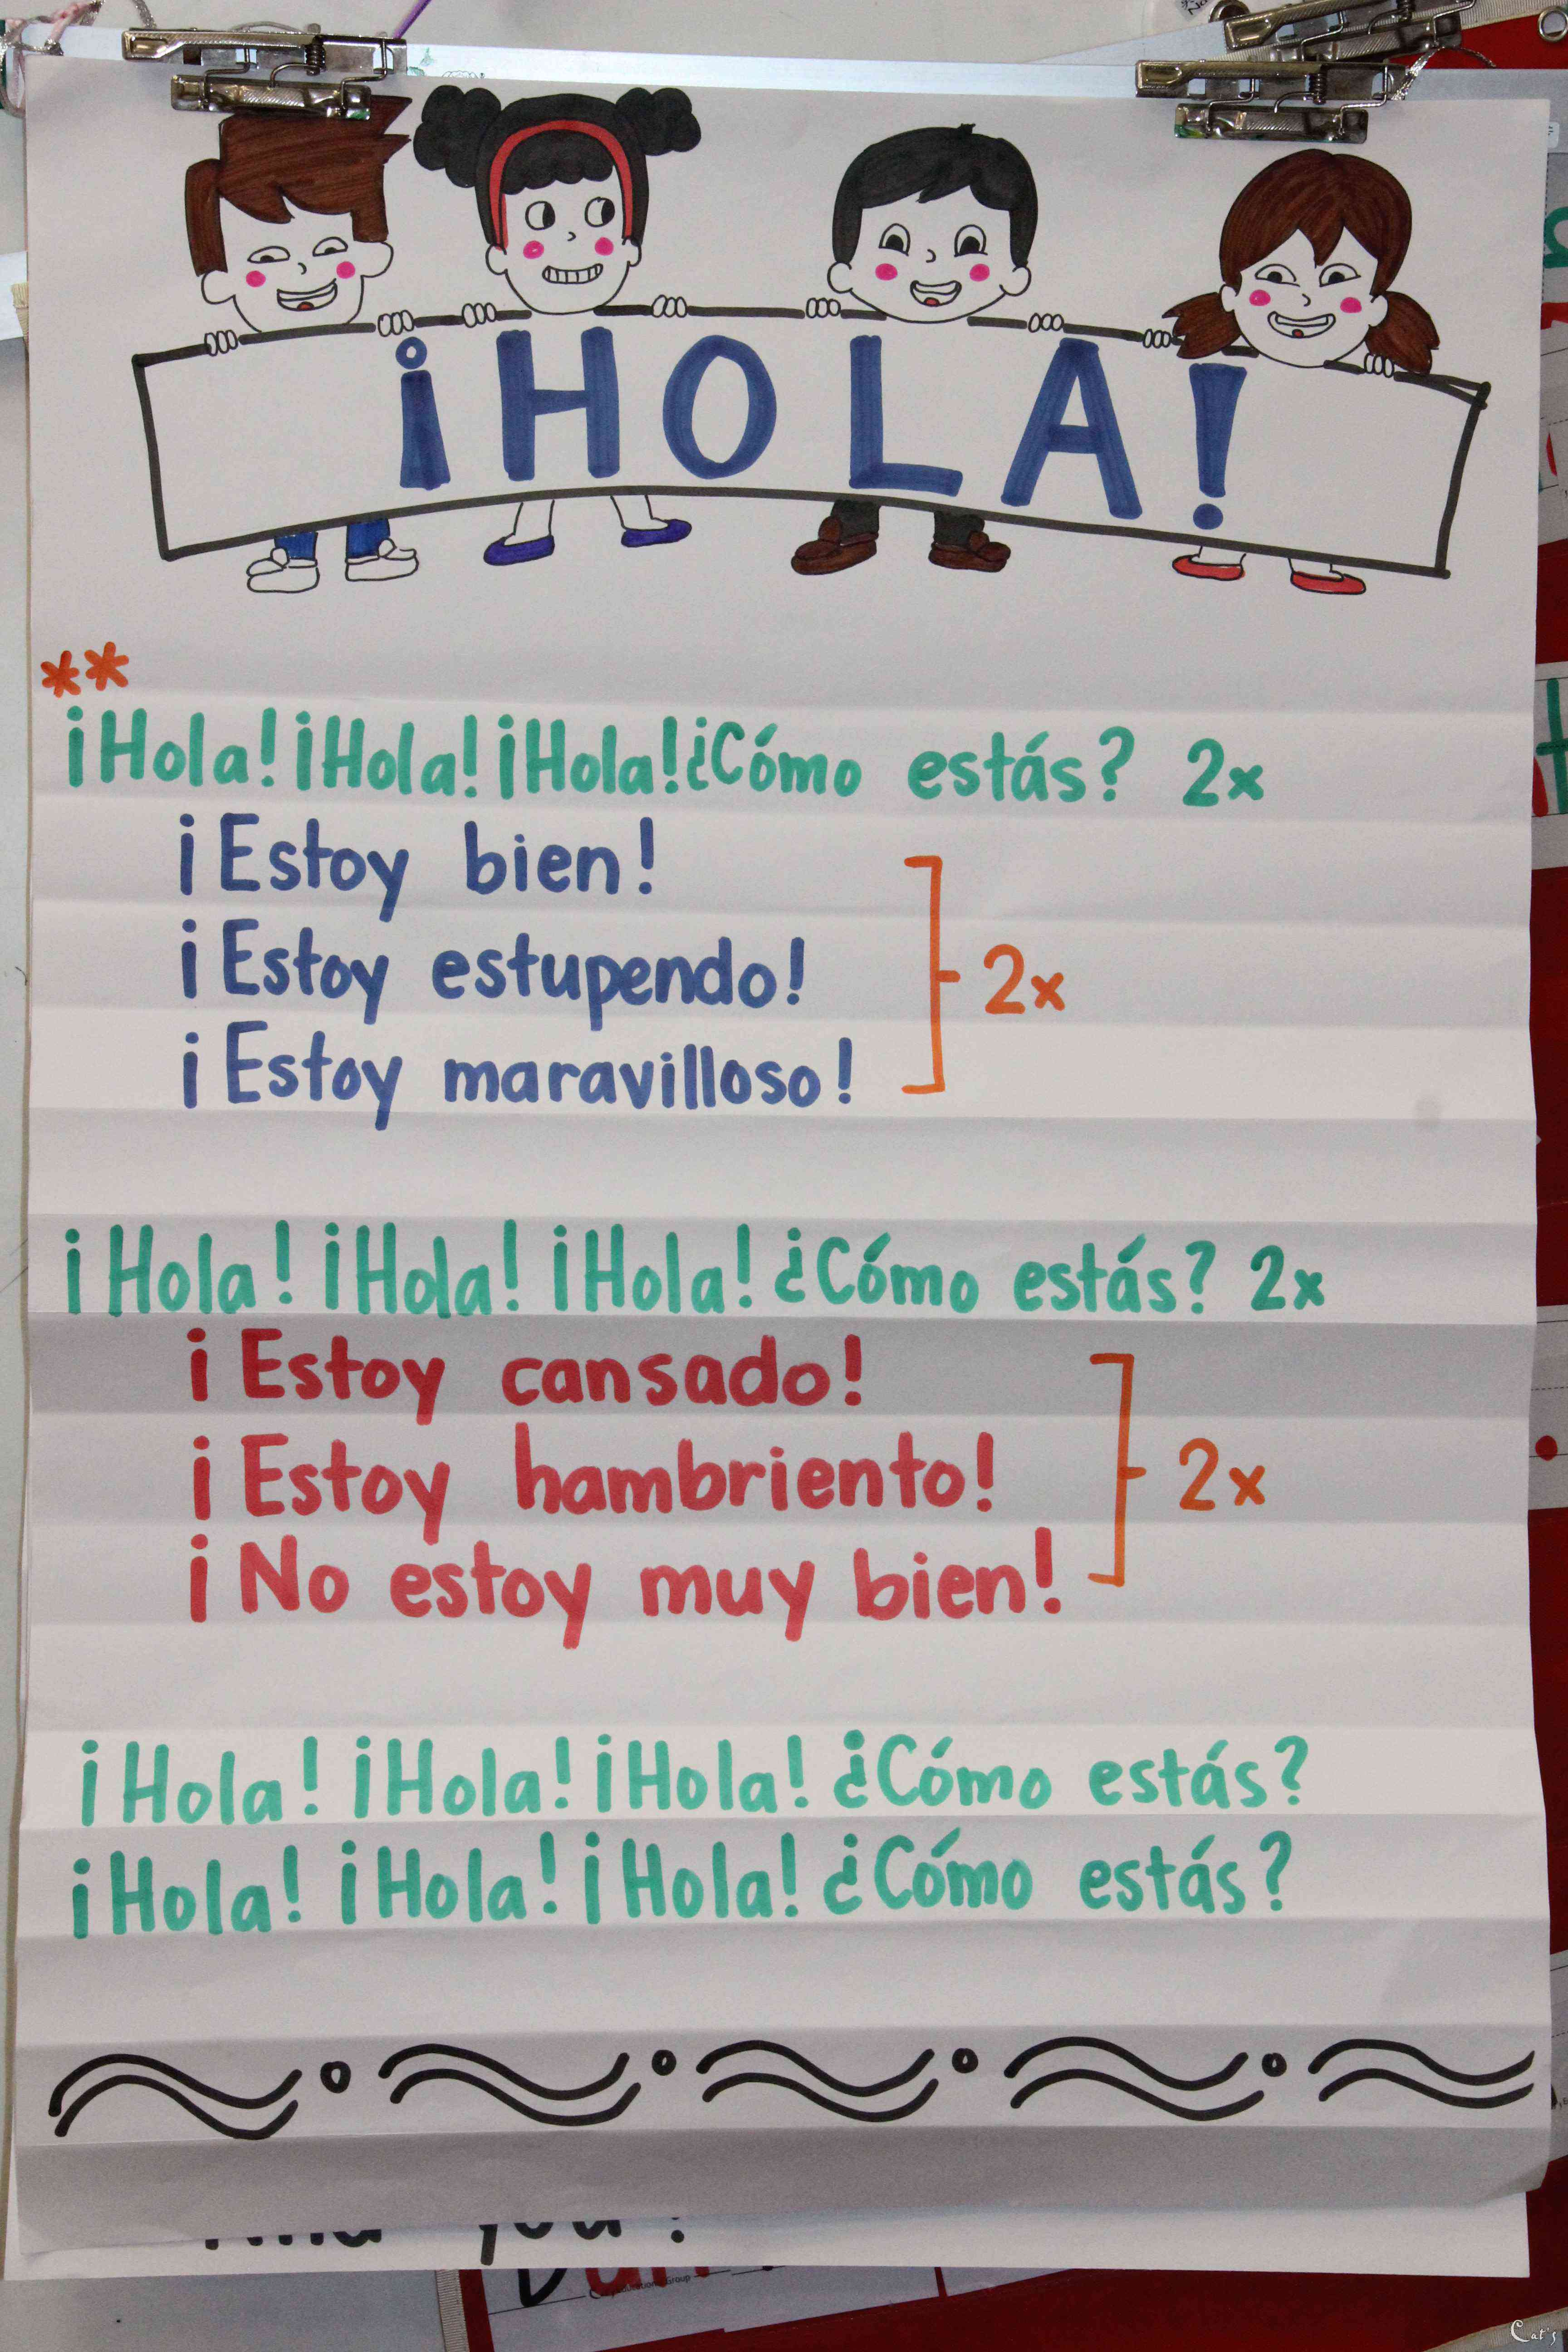 ¡HOLA!
**
¡Hola! ¡Hola! ¡Hola! ¿Cómo estás? 2x
¡Estoy bien!
¡Estoy estupendo!
¡Estoy maravilloso!
2x
¡Hola! ¡Hola! ¡Hola! ¿Cómo estás? 2x
¡Estoy cansado!
¡Estoy hambriento!
¡No estoy muy bien!
2x
¡Hola! ¡Hola! ¡Hola! ¿Cómo estás?
¡Hola! ¡Hola! ¡Hola! ¿Cómo estás?
you?
Cat's